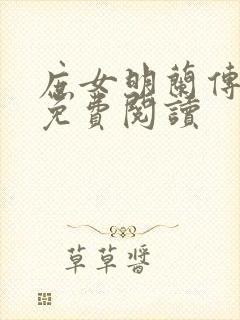 庶女明蘭傳
免費閱讀
草草醬